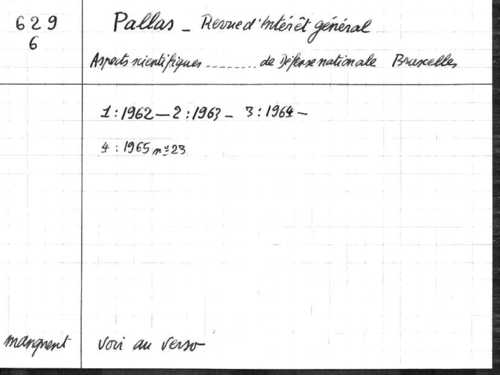 629 Pallas - Revue d'Intérêt général
6
Aspects scientifiques ......... de Défense nationale Bruxelles
1 : 1962 — 2 : 1963 - 3 : 1964 -
4 : 1965 n° 23
manquent voir au verso